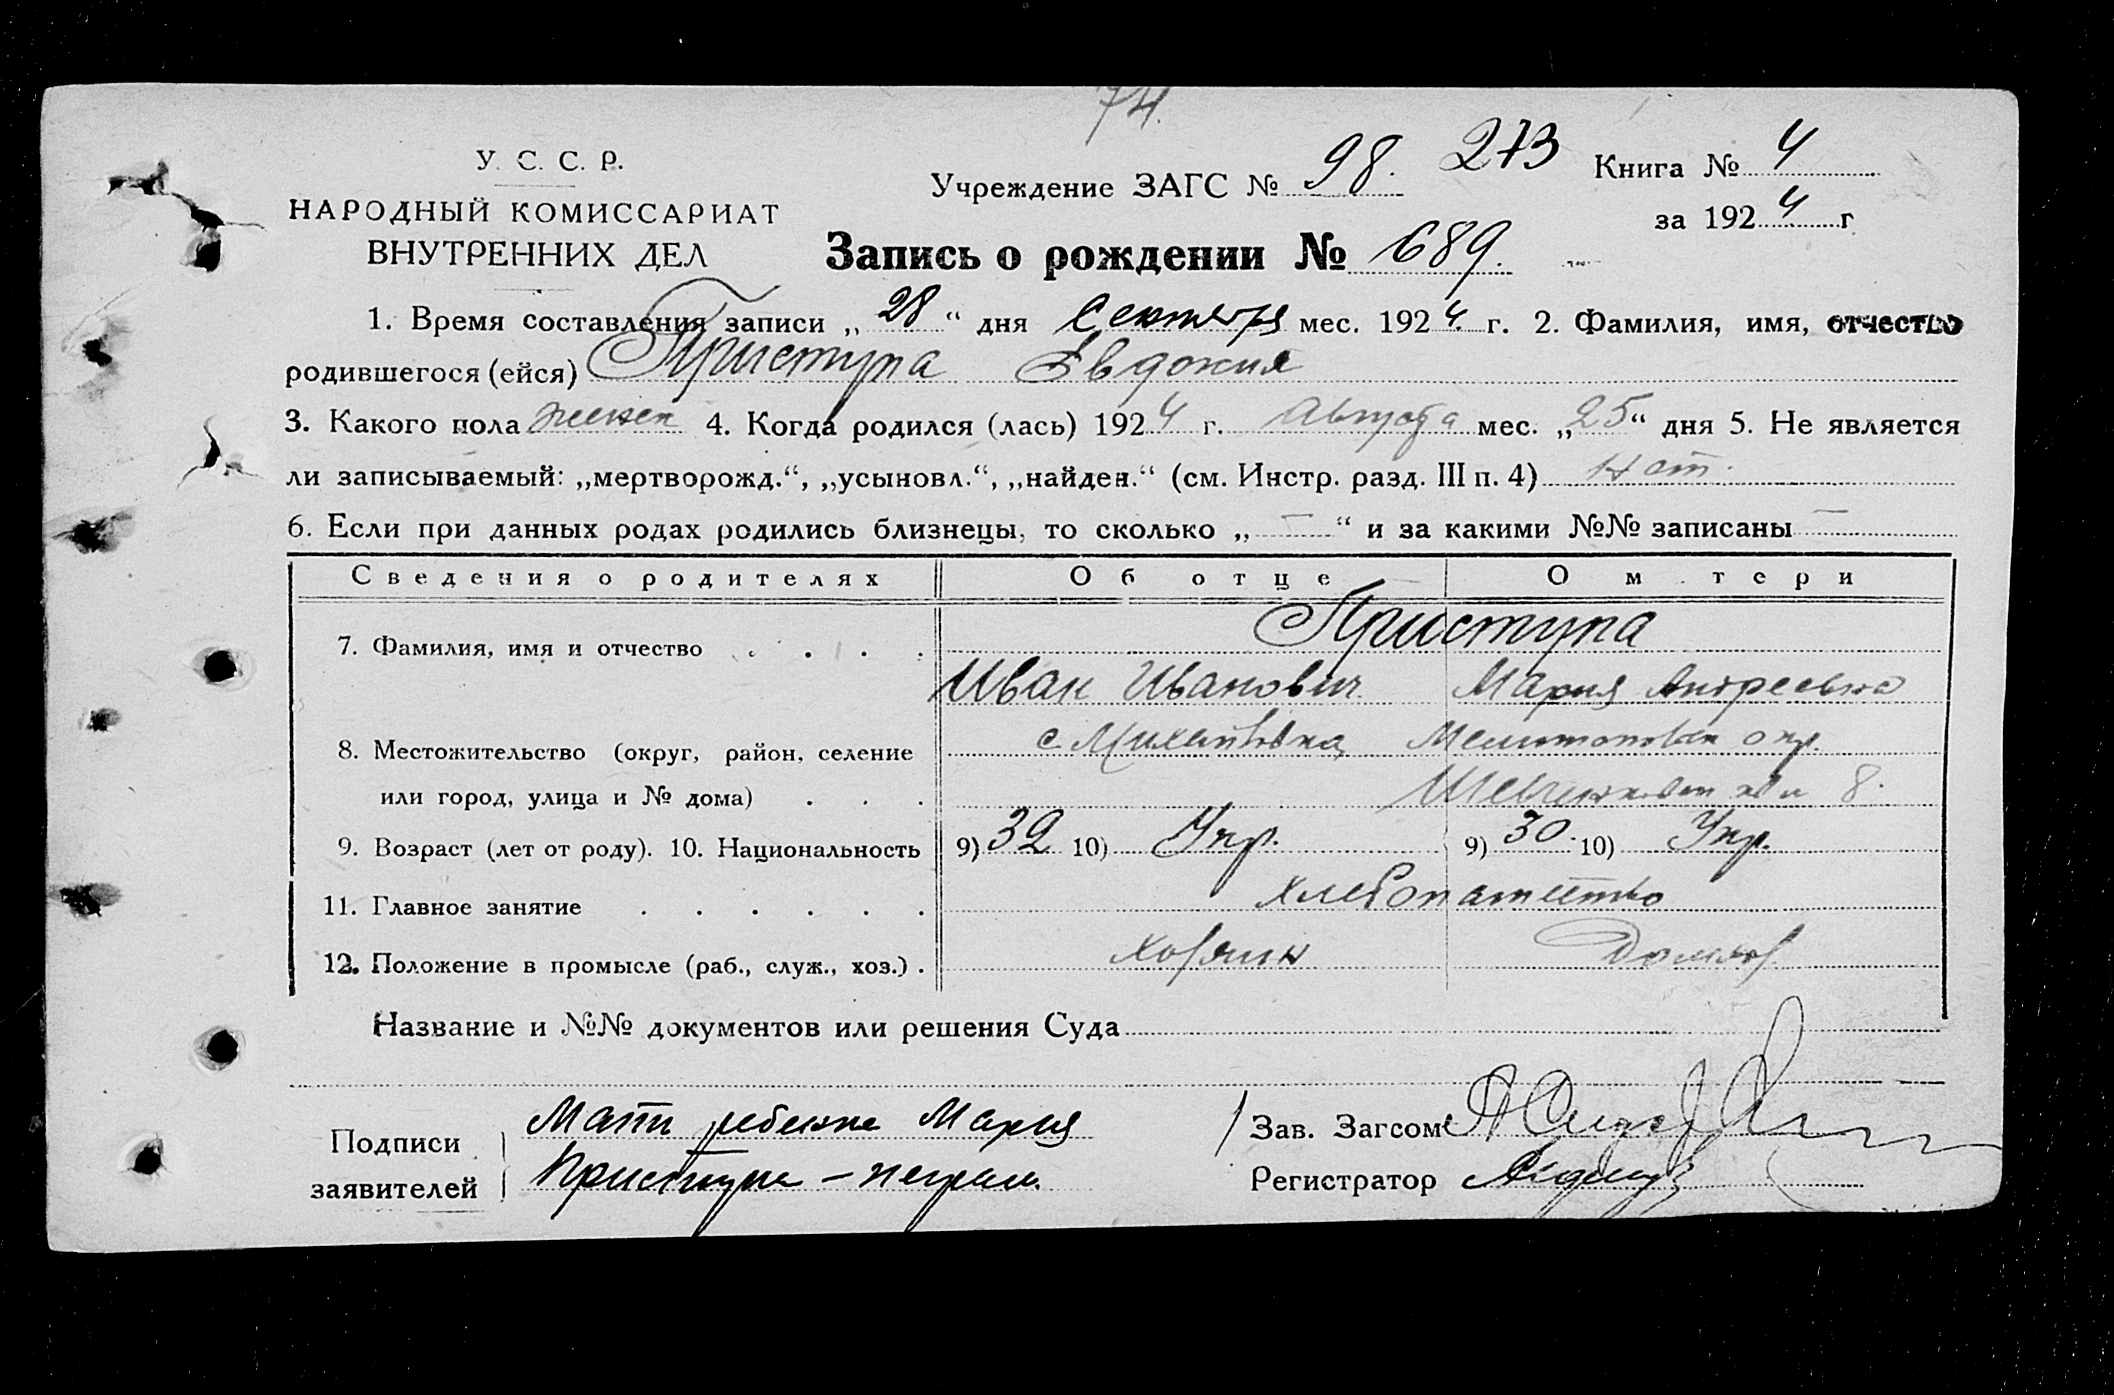 74.
У. С. С. Р.
НАРОДНЫЙ КОМИССАРИАТ
ВНУТРЕННИХ ДЕЛ
Учреждение ЗАГС № 98. 273 Книга № 4
за 1924 г
Запись о рождении № 689.
1. Время составления записи „28“ дня Сентября мес. 1924 г. 2. Фамилия, имя, отчество
родившегося (ейся) Приступа Евдокия
3. Какого пола женск 4. Когда родился (лась) 1924 г. Августа мес. „25“ дня 5. Не является
ли записываемый: „мертворожд.“, „усыновл.“, „найден.“ (см. Инстр. разд. III п. 4) Нет.
6. Если при данных родах родились близнецы, то сколько „—“ и за какими №№ записаны —
Сведения о родителях Об отце О м тери
7. Фамилия, имя и отчество Приступа
Иван Иванович Мария Андреевна
8. Местожительство (округ, район, селение с Михайловка Мелитопольск окр.
или город, улица и № дома) 8.
9. Возраст (лет от роду). 10. Национальность 9) 32 10) Укр. 9) 30. 10) Укр.
11. Главное занятие Хлебопашество
12. Положение в промысле (раб., служ., хоз.) Хозяин Домхоз
Название и №№ документов или решения Суда
Подписи Мать ребенка Мария Зав. Загсом
заявителей Приступа – неграм. Регистратор